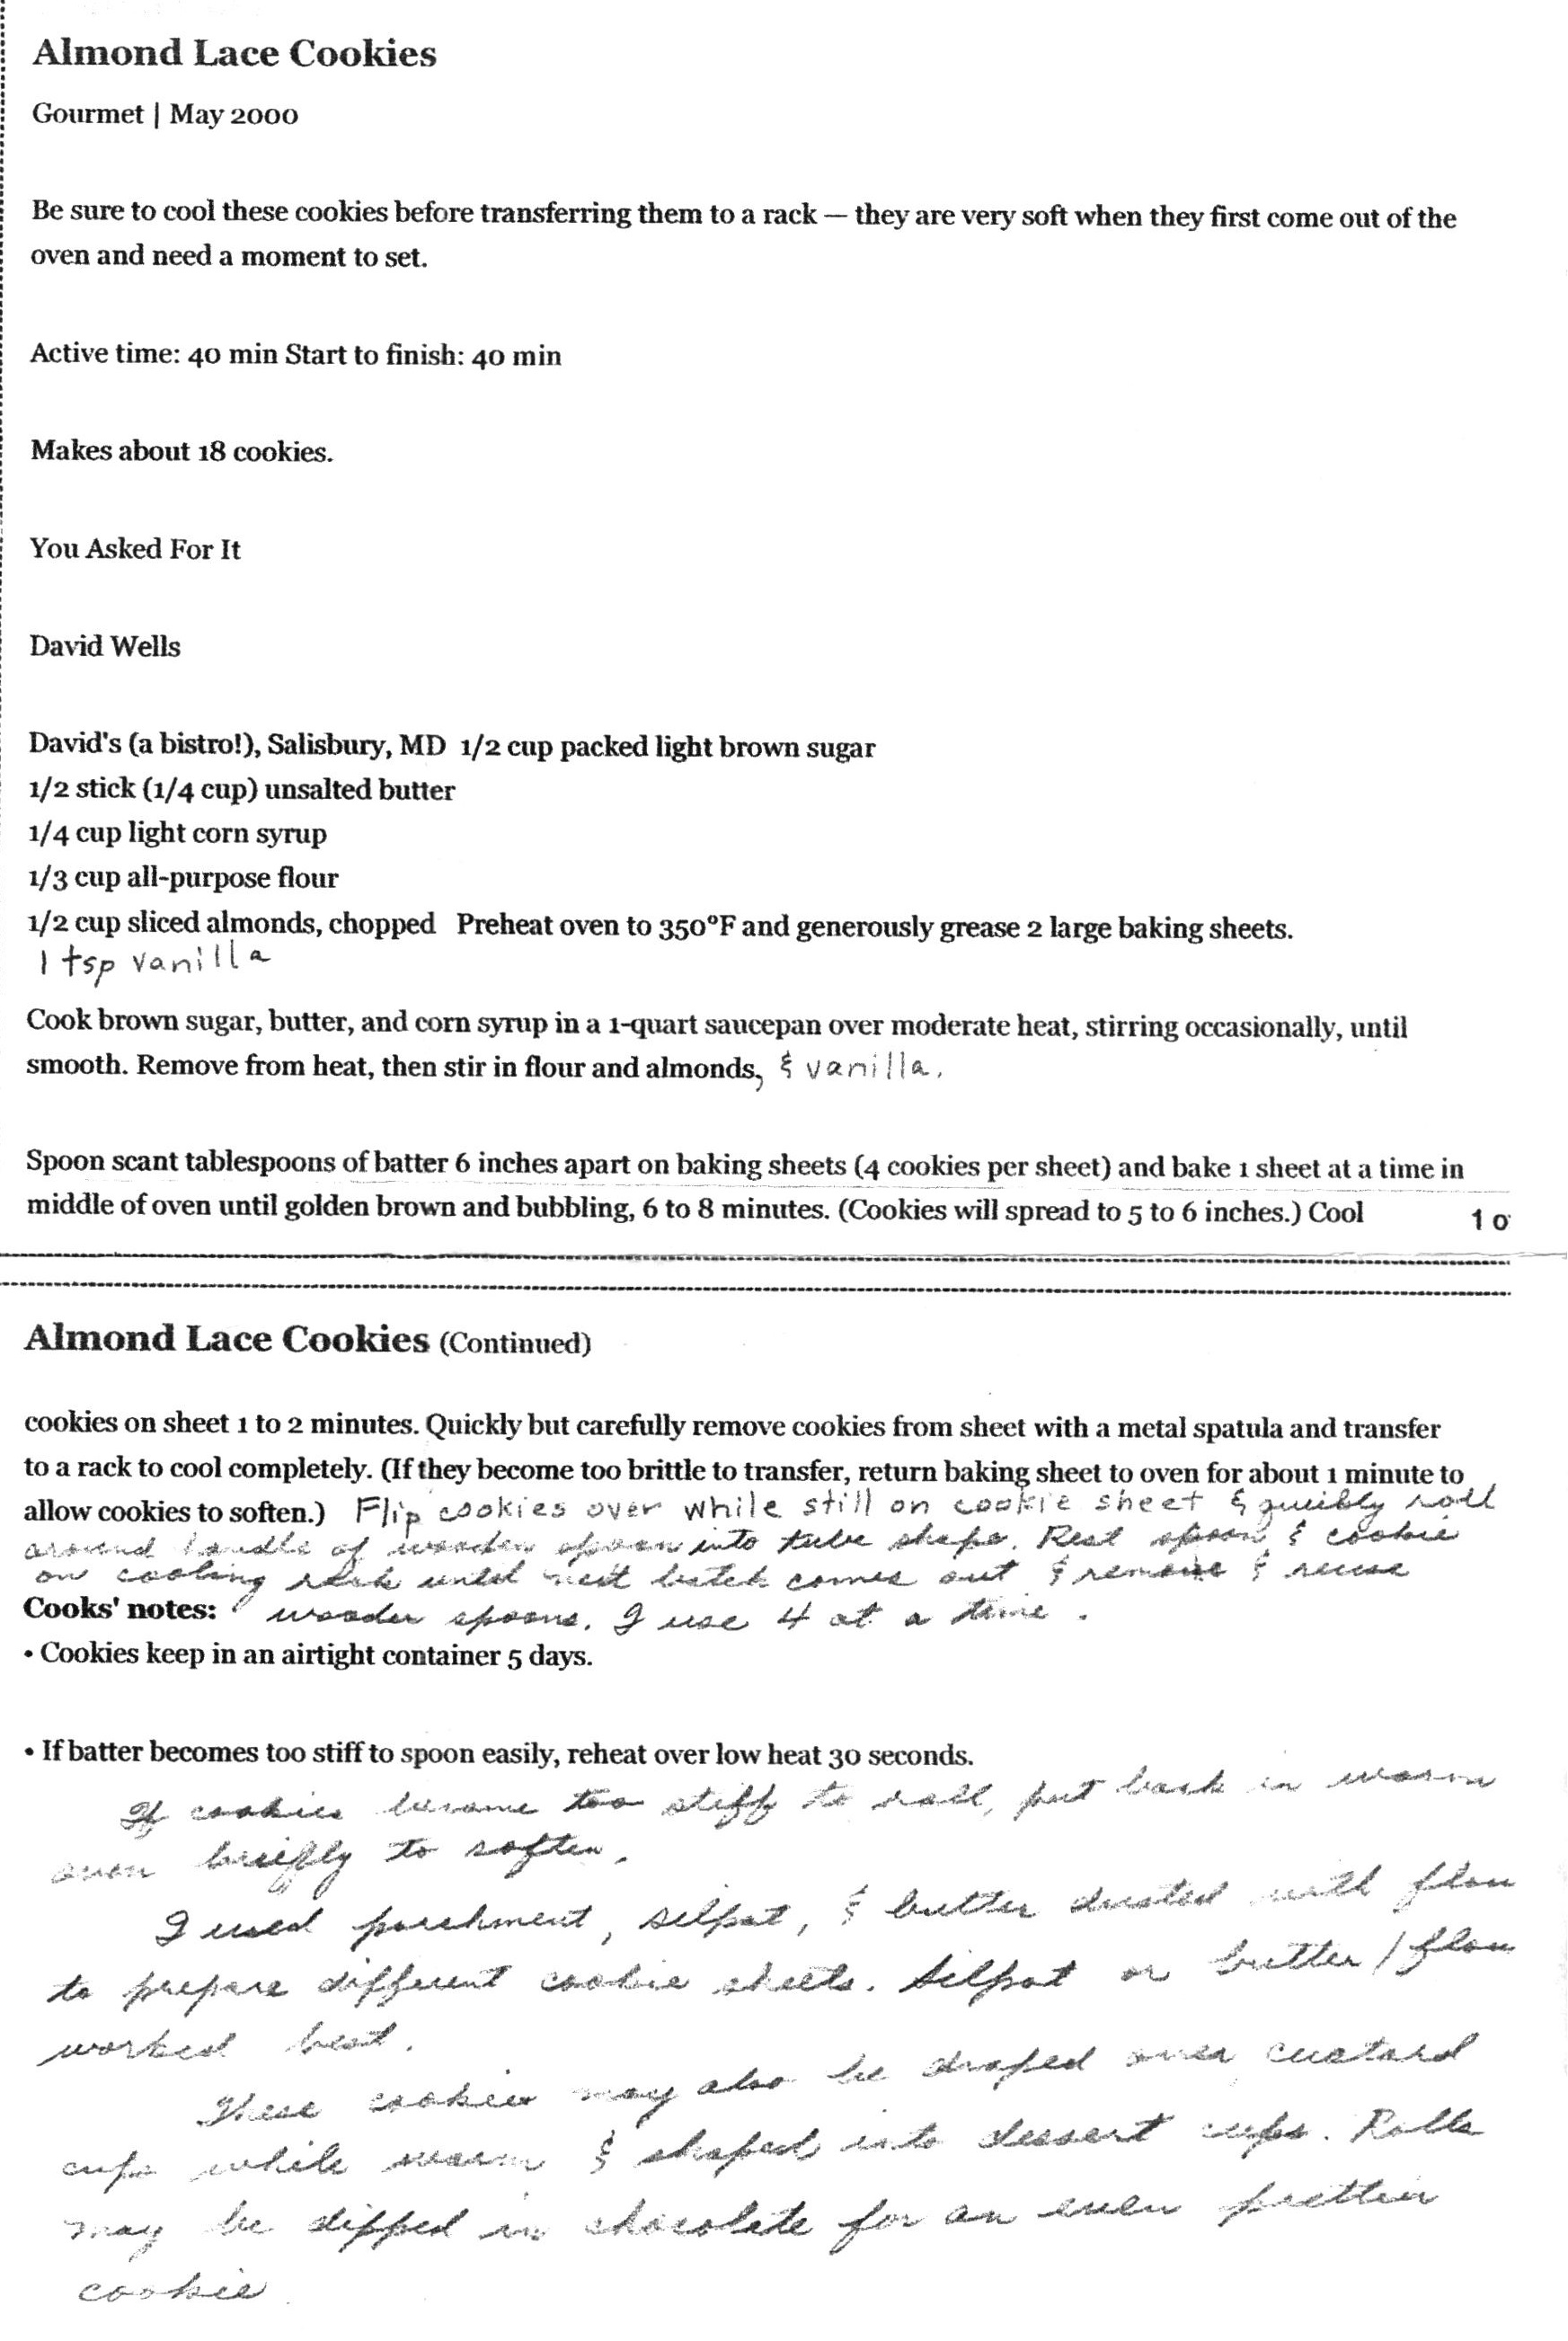 Almond Lace Cookies
Gourmet | May 2000
Be sure to cool these cookies before transferring them to a rack — they are very soft when they first come out of the
oven and need a moment to set.
Active time: 40 min Start to finish: 40 min
Makes about 18 cookies.
You Asked For It
David Wells
David's (a bistro!), Salisbury, MD 1/2 cup packed light brown sugar
1/2 stick (1/4 cup) unsalted butter
1/4 cup light corn syrup
1/3 cup all-purpose flour
1/2 cup sliced almonds, chopped Preheat oven to 350°F and generously grease 2 large baking sheets.
1 tsp vanilla
Cook brown sugar, butter, and corn syrup in a 1-quart saucepan over moderate heat, stirring occasionally, until
smooth. Remove from heat, then stir in flour and almonds, & vanilla.
Spoon scant tablespoons of batter 6 inches apart on baking sheets (4 cookies per sheet) and bake 1 sheet at a time in
middle of oven until golden brown and bubbling, 6 to 8 minutes. (Cookies will spread to 5 to 6 inches.) Cool 1 o
Almond Lace Cookies (Continued)
cookies on sheet 1 to 2 minutes. Quickly but carefully remove cookies from sheet with a metal spatula and transfer
to a rack to cool completely. (If they become too brittle to transfer, return baking sheet to oven for about 1 minute to
allow cookies to soften.) Flip cookies over while still on cookie sheet & quickly roll
around handle of wooden spoon into tube shape. Rest spoon & cookie
on cooling rack until next batch comes out & remove & reuse
Cooks' notes: wooden spoons. I use 4 at a time.
• Cookies keep in an airtight container 5 days.
• If batter becomes too stiff to spoon easily, reheat over low heat 30 seconds.
If cookies become too stiff to roll, put back in warm
oven briefly to soften.
I used parchment, silpat, & butter dusted with flour
to prepare different cookie sheets. Silpat or butter/flour
worked best.
These cookies may also be draped over custard
cups while warm & shaped into dessert cups. Rolls
may be dipped in chocolate for an even prettier
cookie.